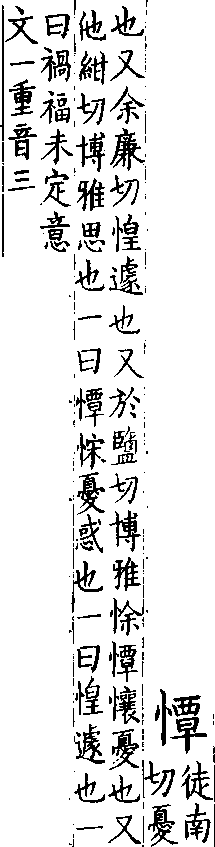 憛
徒南
切憂
也又余廉切惶遽也又於鹽切博雅悇憛懹憂也又
他紺切博雅思也一曰憛悇憂惑也一曰惶遽也一
曰禍福未定意
文一重音三